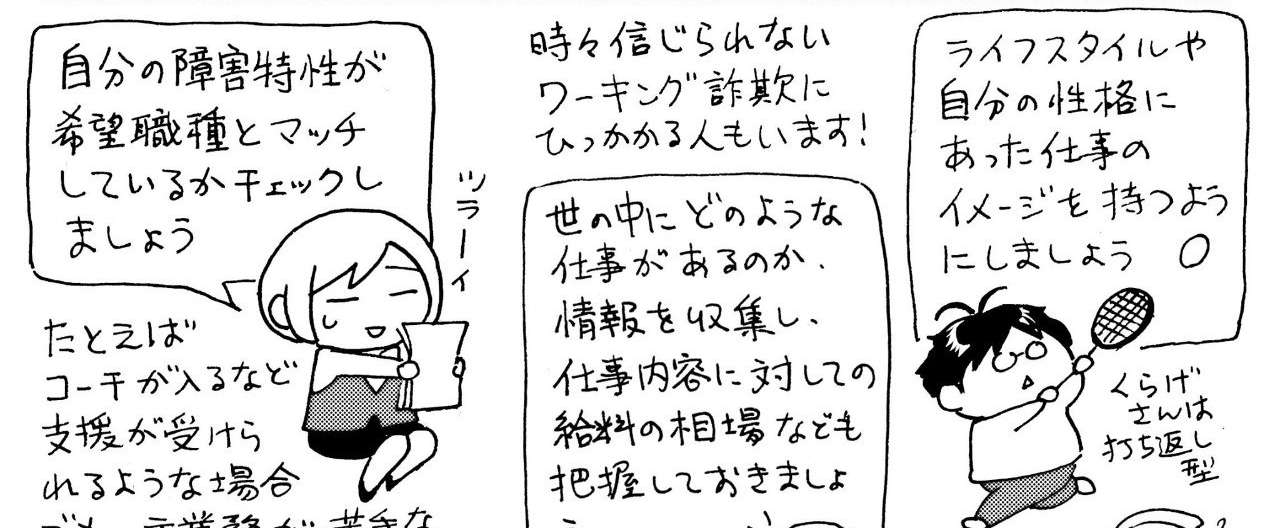 自分の障害特性が
希望職種とマッチ
しているかチェックし
ましょう
ツラーイ
たとえば
コーチが入るなど
支援が受けら
れるような場合
時々信じられない
ワーキング詐欺に
ひっかかる人もいます!
世の中にどのような
仕事があるのか、
情報を収集し、
仕事内容に対しての
給料の相場なども
把握しておきましょ
う
ライフスタイルや
自分の性格に
あった仕事の
イメージを持つよう
にしましょう ○
くらげ
さんは
打ち返し
型